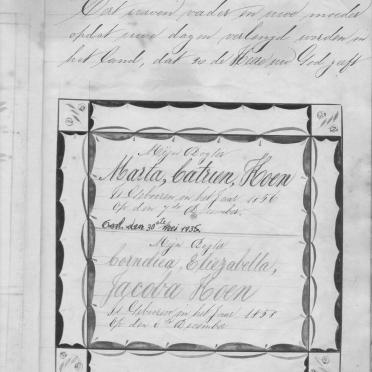 Eert uwen vader en uwe moeder
opdat uwe dagen verlengd worden in
het land, dat u de Heere uw God geeft
Mijn Dogter
Marta, Catrien, Hoen
Is Gebooren in het Jaar 1856
Op den 7de December
Overl. den 30ste Mei 1935.
Mijn Dogter
Cornelia, Eliezabella,
Jacoba Hoen
Is Gebooren in het Jaar 1858
Op den December